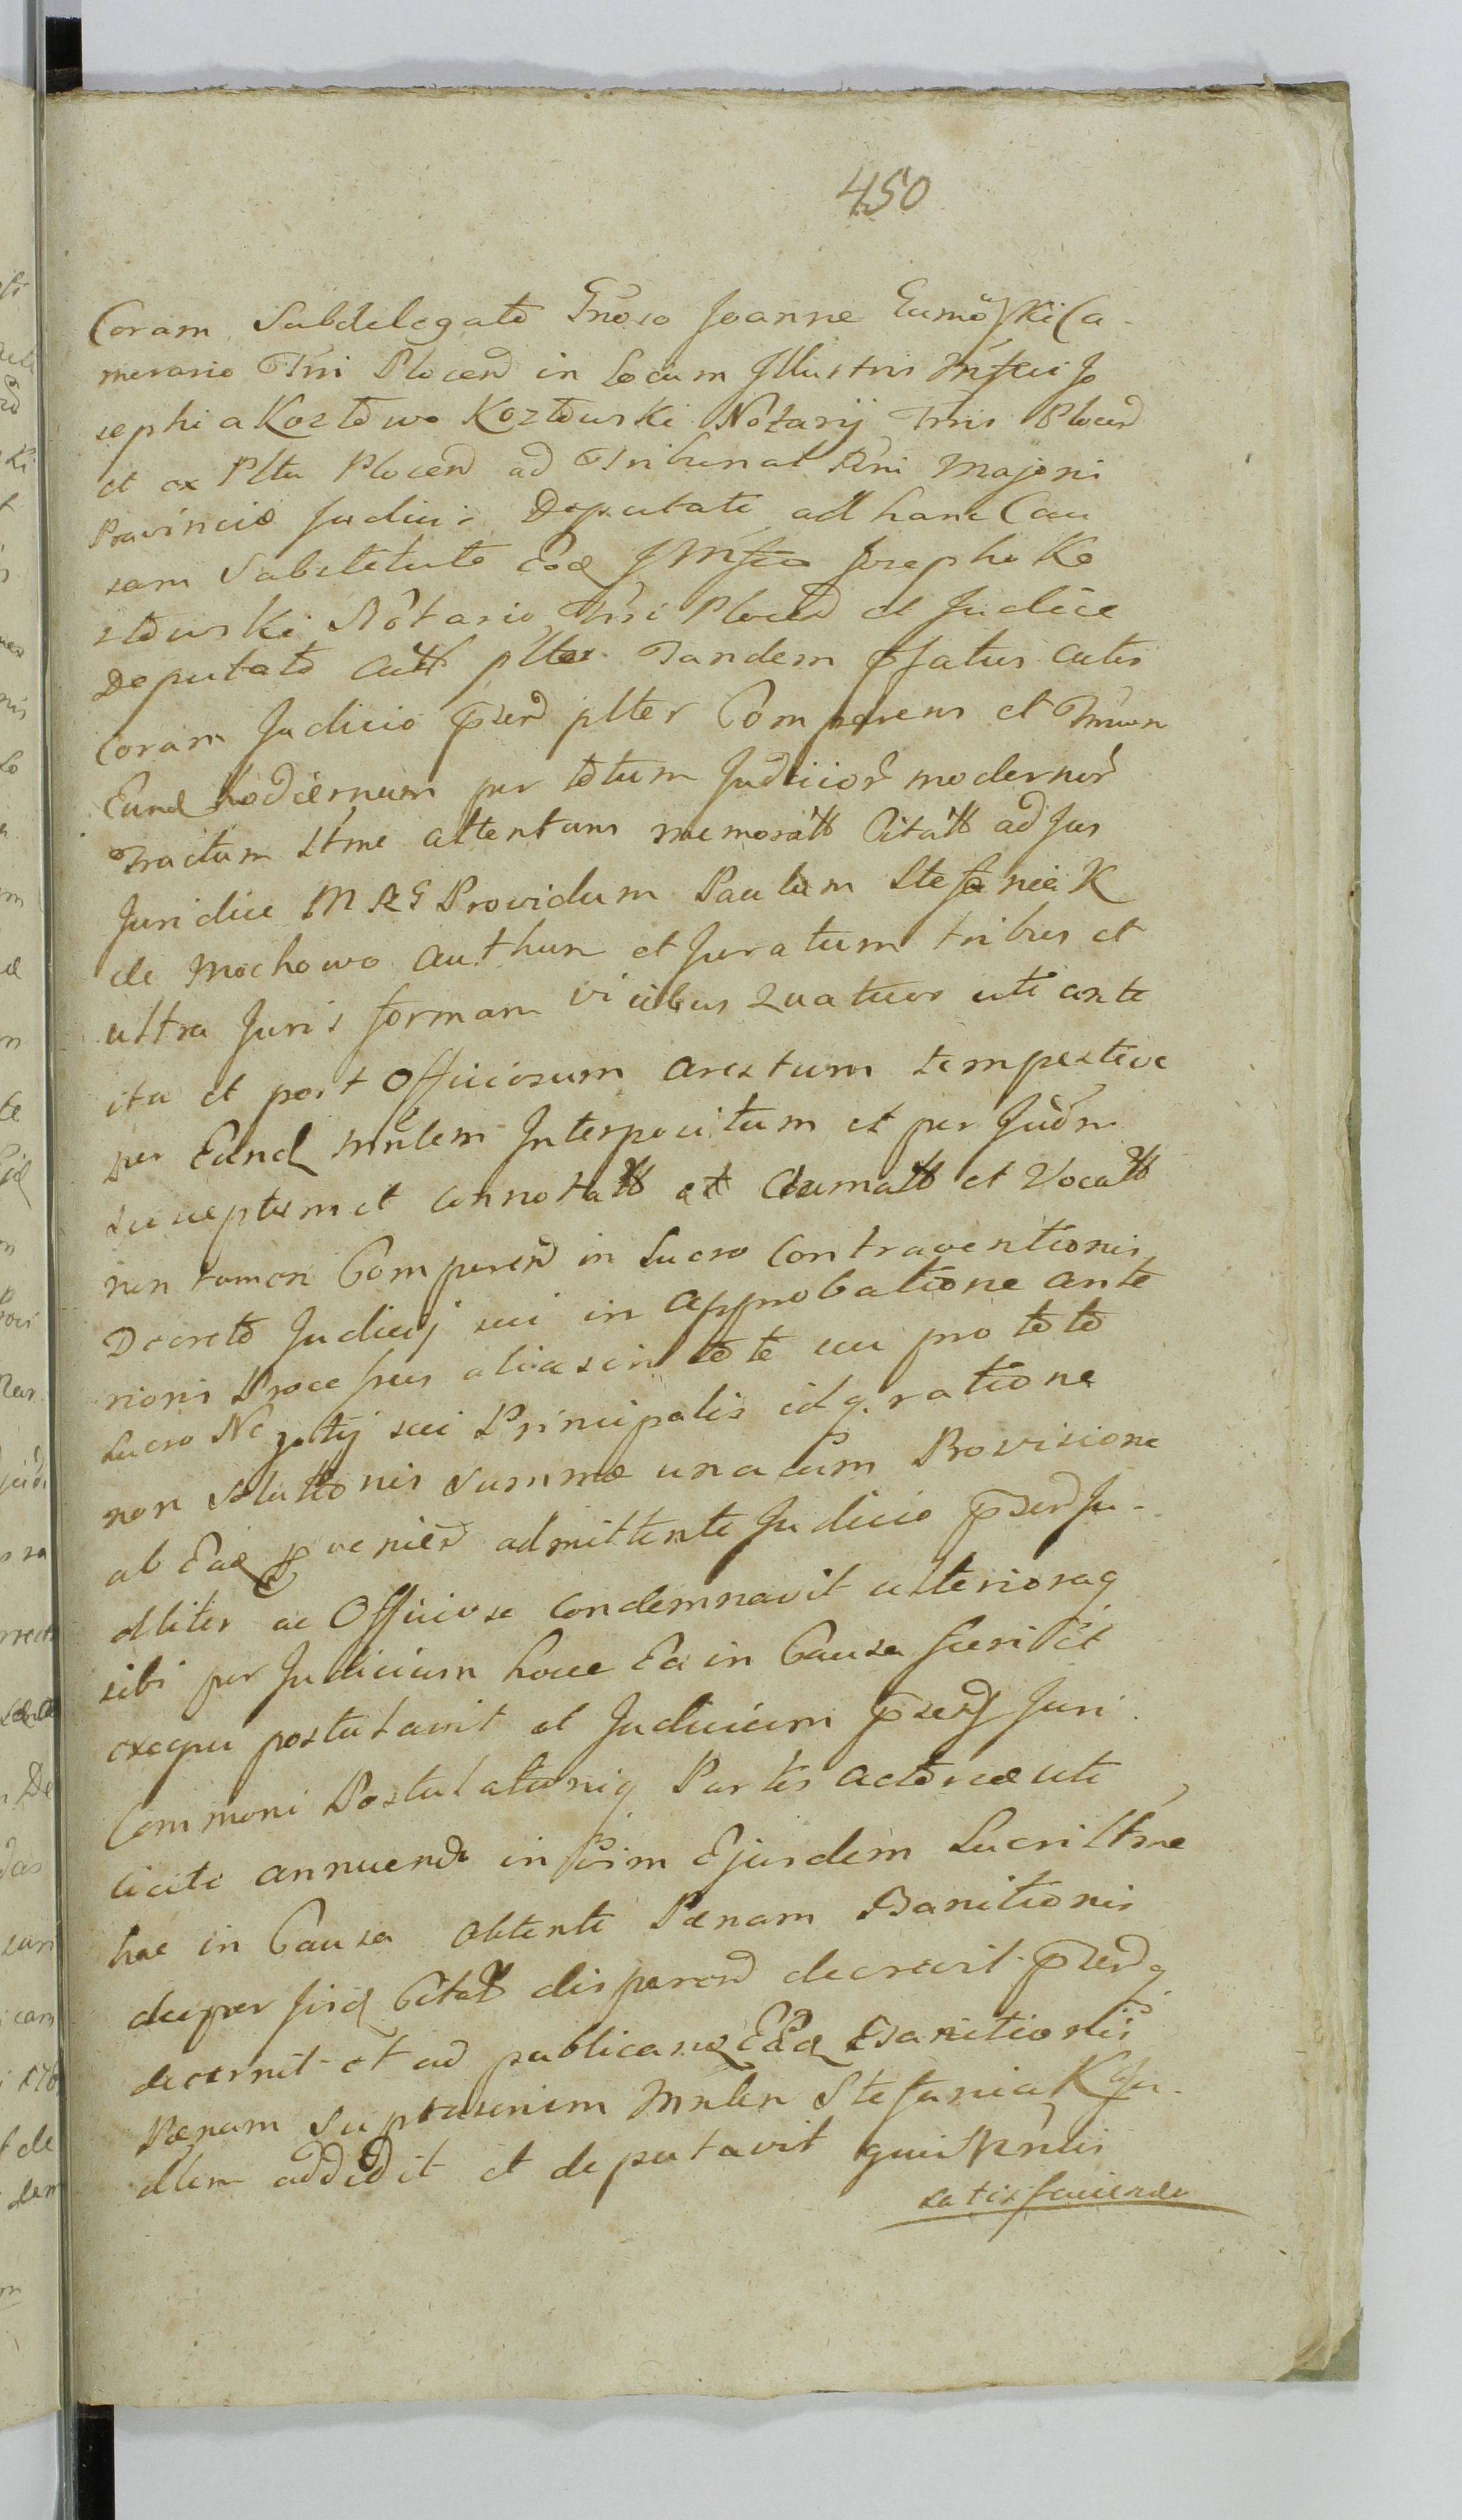 450
Coram Subdelegato Gnoso Joanne Ca-
merario Trri Plocen in Locum Illustris Mgfici Jo
sephi a Kozłowo Kozłowski Notarij Trris Plocen
et ex Pltu Plocen ad Tribunal Rni Majoris
Provinciæ Judicis Deputati ad hanc Cau
sam Substituto Eoq Josepho Ko
złowski Notario Trri Plocen et Judice
Deputato Citatt plter Tandem pfatus citus
Coram Judicio pzen plter Comparens et Trmum
Eund hodiernum per totum Judicior modernor
Tractum ltme attentans memoratt Citatt ad Jus
Juridice M RG Providum Paulum Stefaniak
de Mochowo Authen et Juratum tribus et
ultra Juris formam vicibus Quatuor uti ante
ita et post Officiosum Arestum tempestive
per Eund Mnlem Interpositum et per Judm
susceptum et connotatt et Clamatt et Vocatt
non tamen Comparen in Lucro Contraventionis
Decreto Judicij sui in Approbatione Ante
rioris Processus alias in toto uu pro toto
Lucro Negotij sui Principalis idq ratione
non Solutionis Summæ una cum Provisione
ab Eaq pvenien admittente Judicio pzen Ju-
dliter ac Officiose Condemnavit ulterioraq
sibi per Judicium hocce Ea in Causa fieri et
exequi postulavit et Judicium pzens Juri
Communi Postulationiq Partis Actoreæ uti
licite annuendo in vim Ejusdem Lucri ltme
hac in Causa Obtenti Pænam Banitionis
super Citatt disparen decrevit pzenq
decernit et ad publicanq Eaq Banitionis
Pænam Mnlen Stefaniak Ju-
dlem addidit et deputavit quis Pntis
satisfaciendo